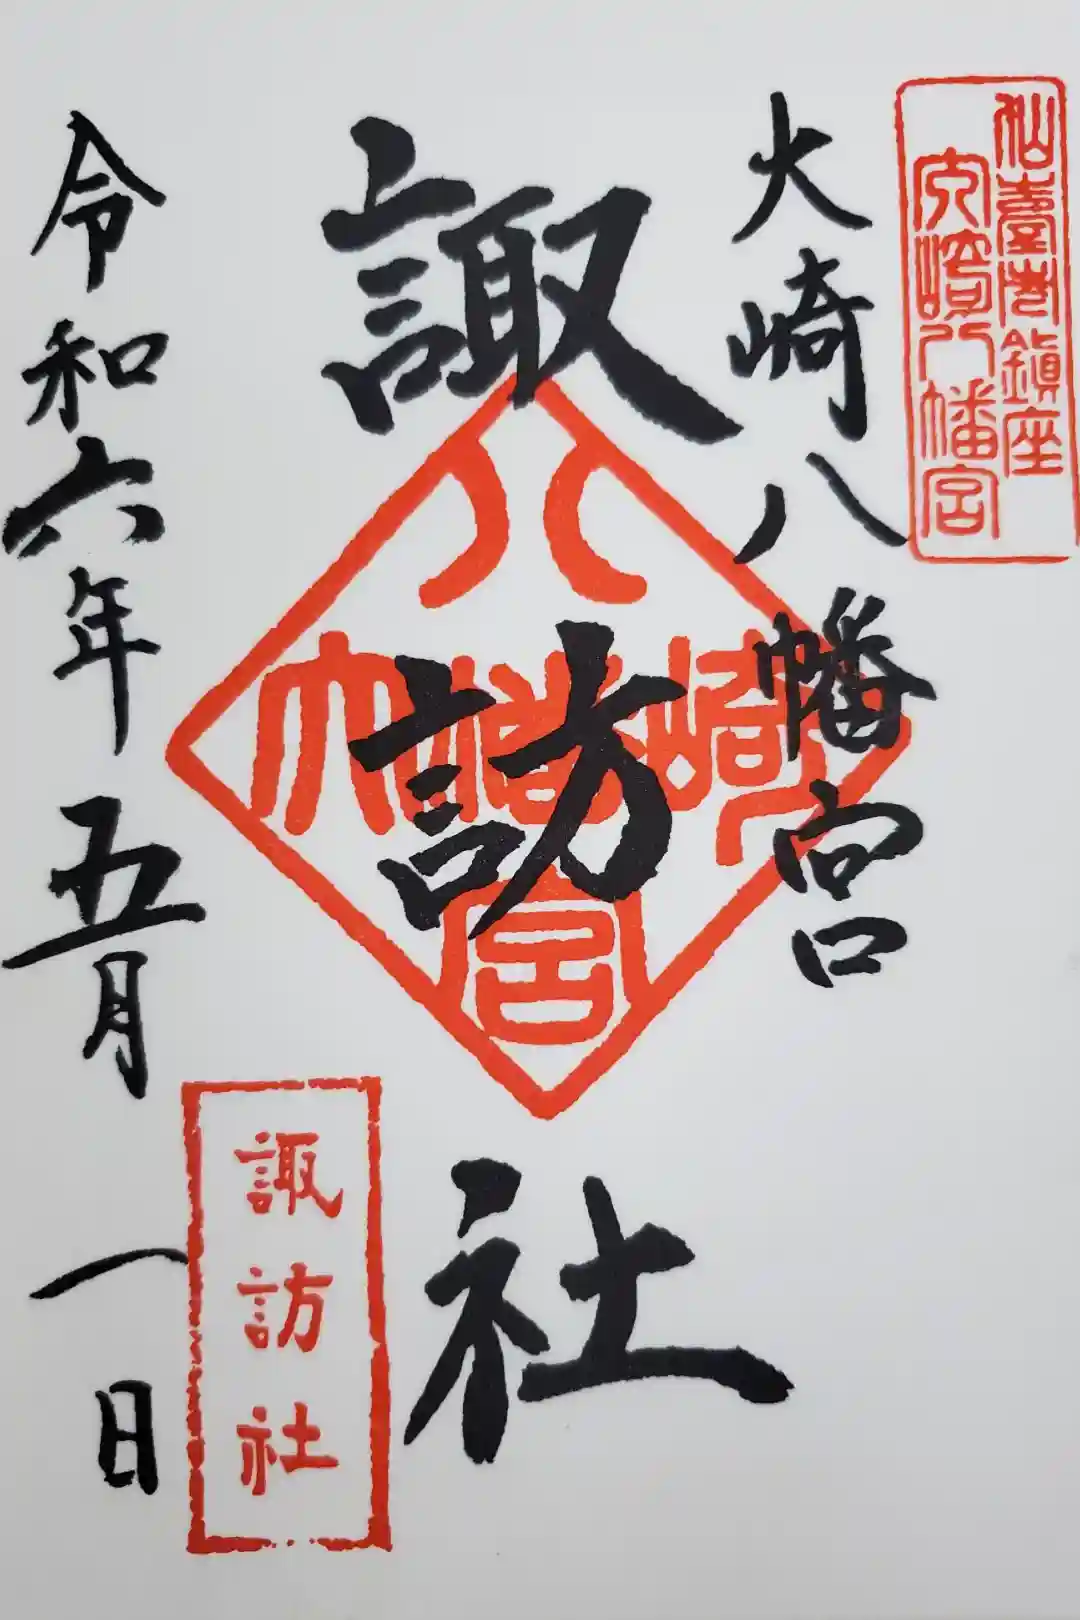 仙臺市鎮座
大崎八幡宮
大崎八幡宮
諏訪社
八
大幡崎
宮
令和六年五月一日
諏訪社